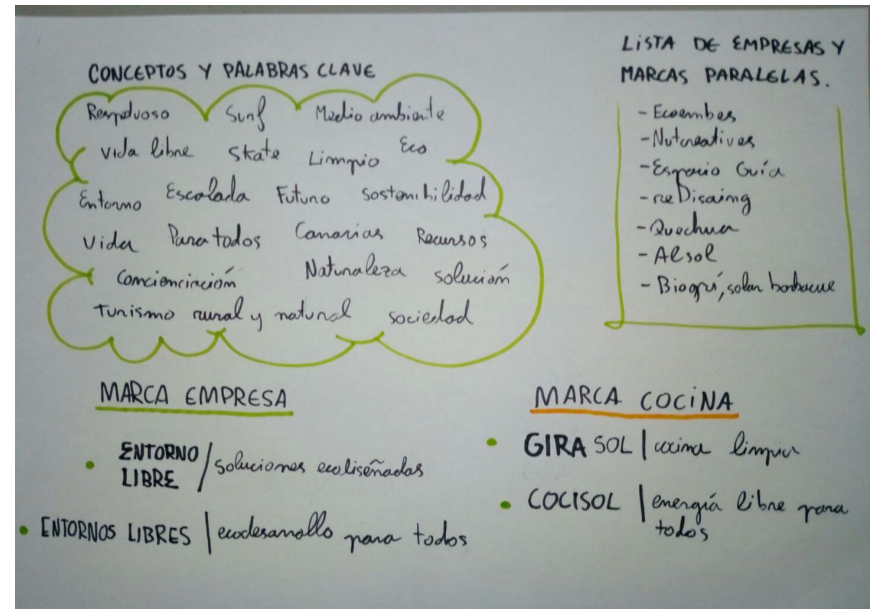 CONCEPTOS Y PALABRAS CLAVE
Respetuoso Surf Medio ambiente
vida libre skate Limpio Eco
Entorno Escalada Futuro sostenibilidad
Vida Para todos Canarias Recursos
Concienciación Naturaleza solución
Turismo rural y natural sociedad
LISTA DE EMPRESAS Y
MARCAS PARALELAS.
- Ecoembes
- Nutcreatives
- Espacio Guía
- Quechua
- Alsol
- solar barbacue
MARCA EMPRESA
• ENTORNO
LIBRE / soluciones ecodiseñadas
• ENTORNOS LIBRES | ecodesarrollo para todos
MARCA COCINA
• GIRA SOL | cocina limpia
• COCISOL | energía libre para
todos